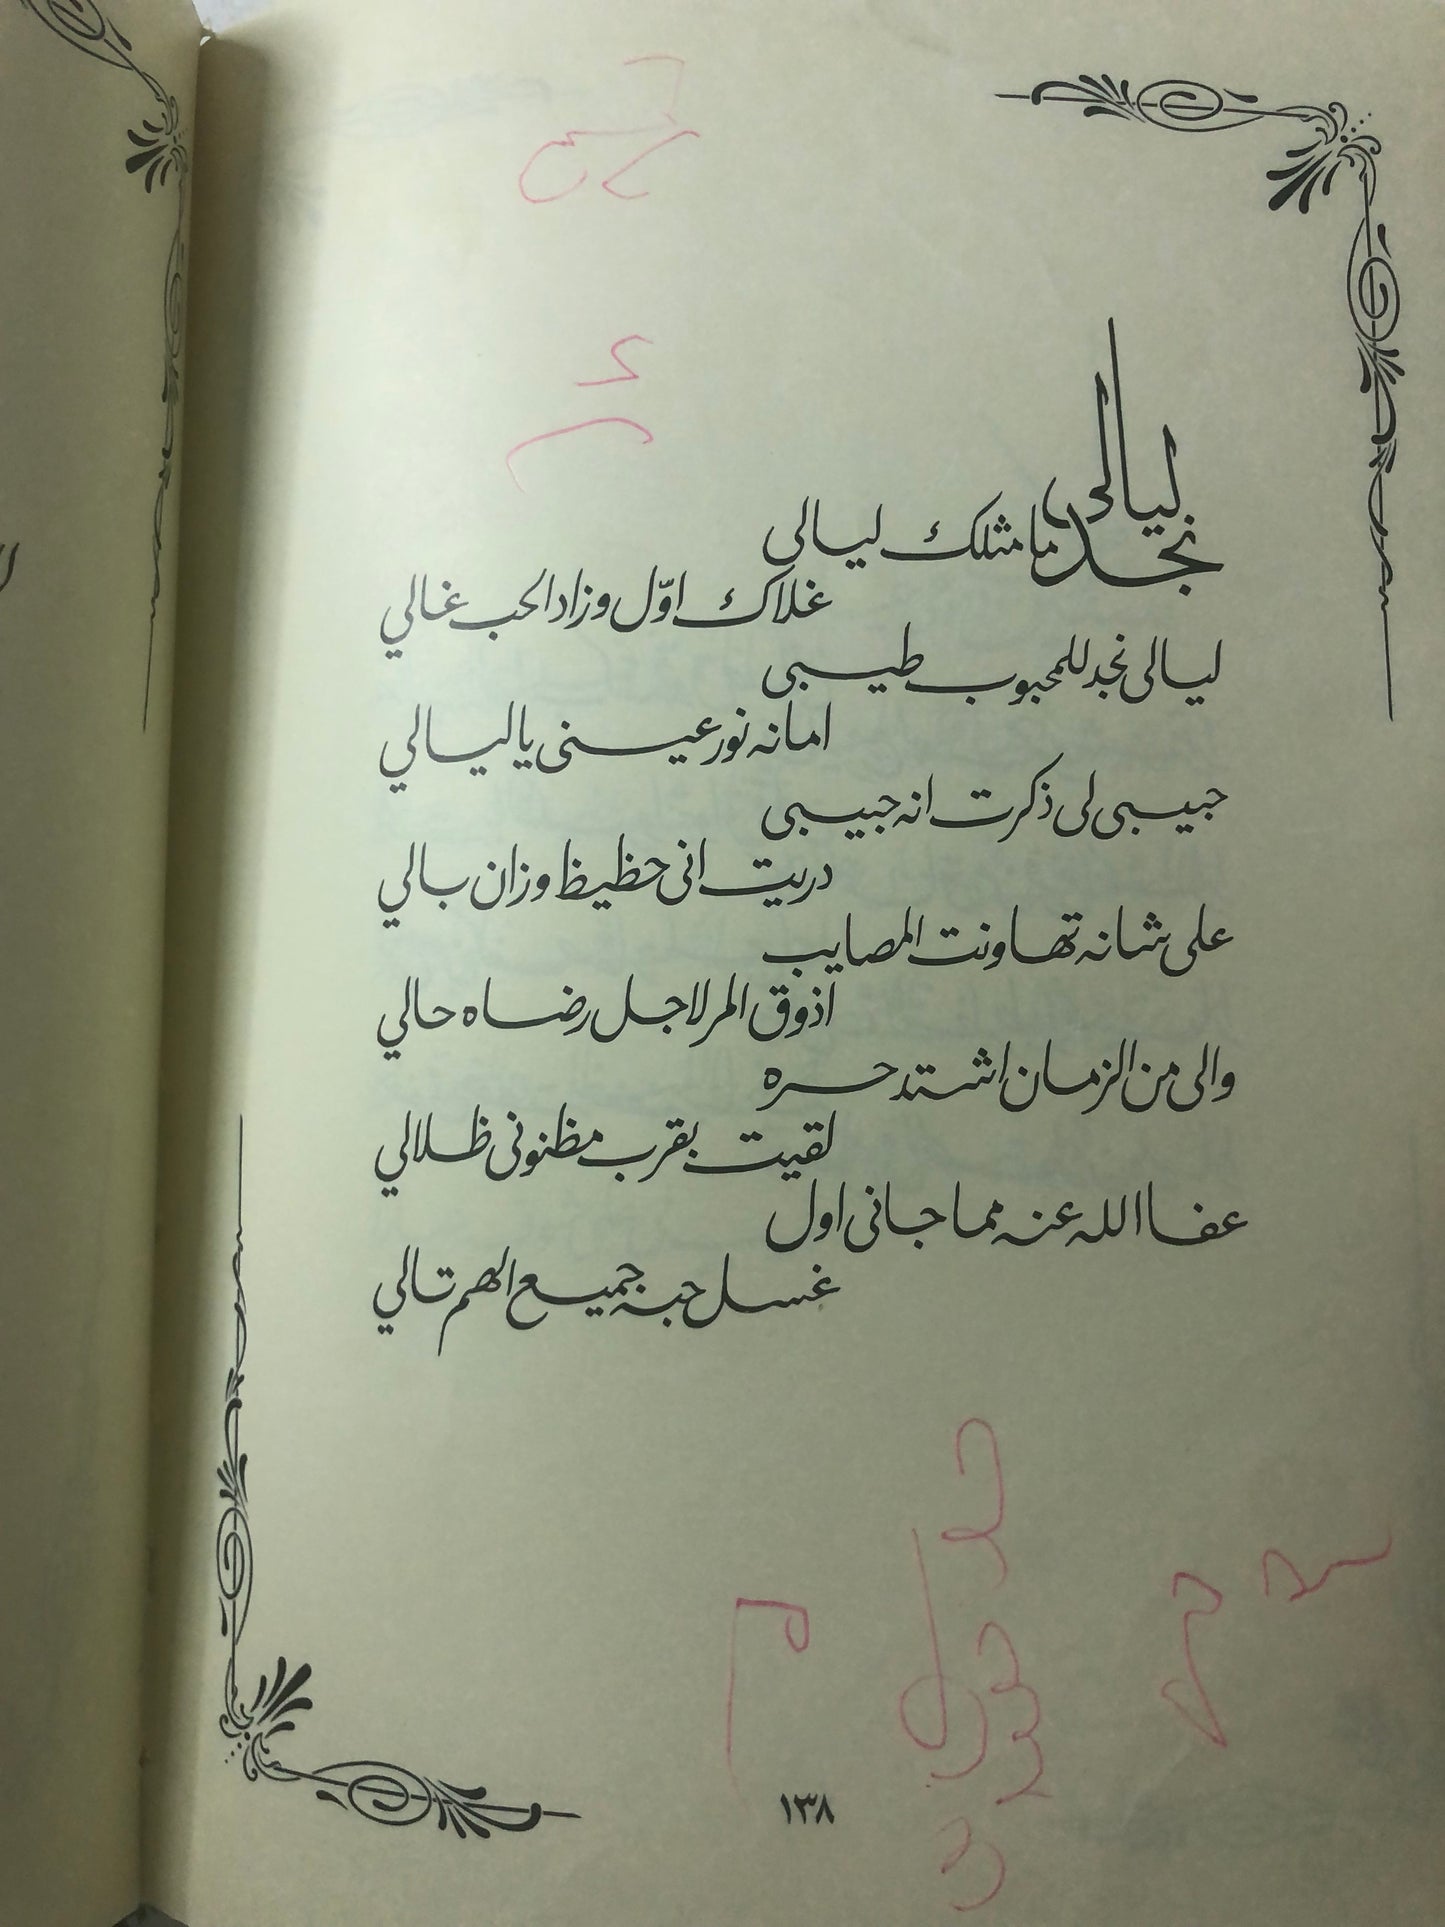 ليالى
نجد مامثلك ليالى
غلاك اوّل وزاد الحب غالي
ليالى نجد للمحبوب طيبى
امانه نور عينى ياليالي
حبيبى لى ذكرت انه حبيبى
دريت انى حظيظ وزان بالي
على شانه تهاونت المصايب
اذوق المر لاجل رضاه حالي
والى من الزمان اشتد حره
لقيت بقرب مظنونى ظلالي
عفا الله عنه مما جانى اول
غسل حبه جميع الهم تالي
١٣٨